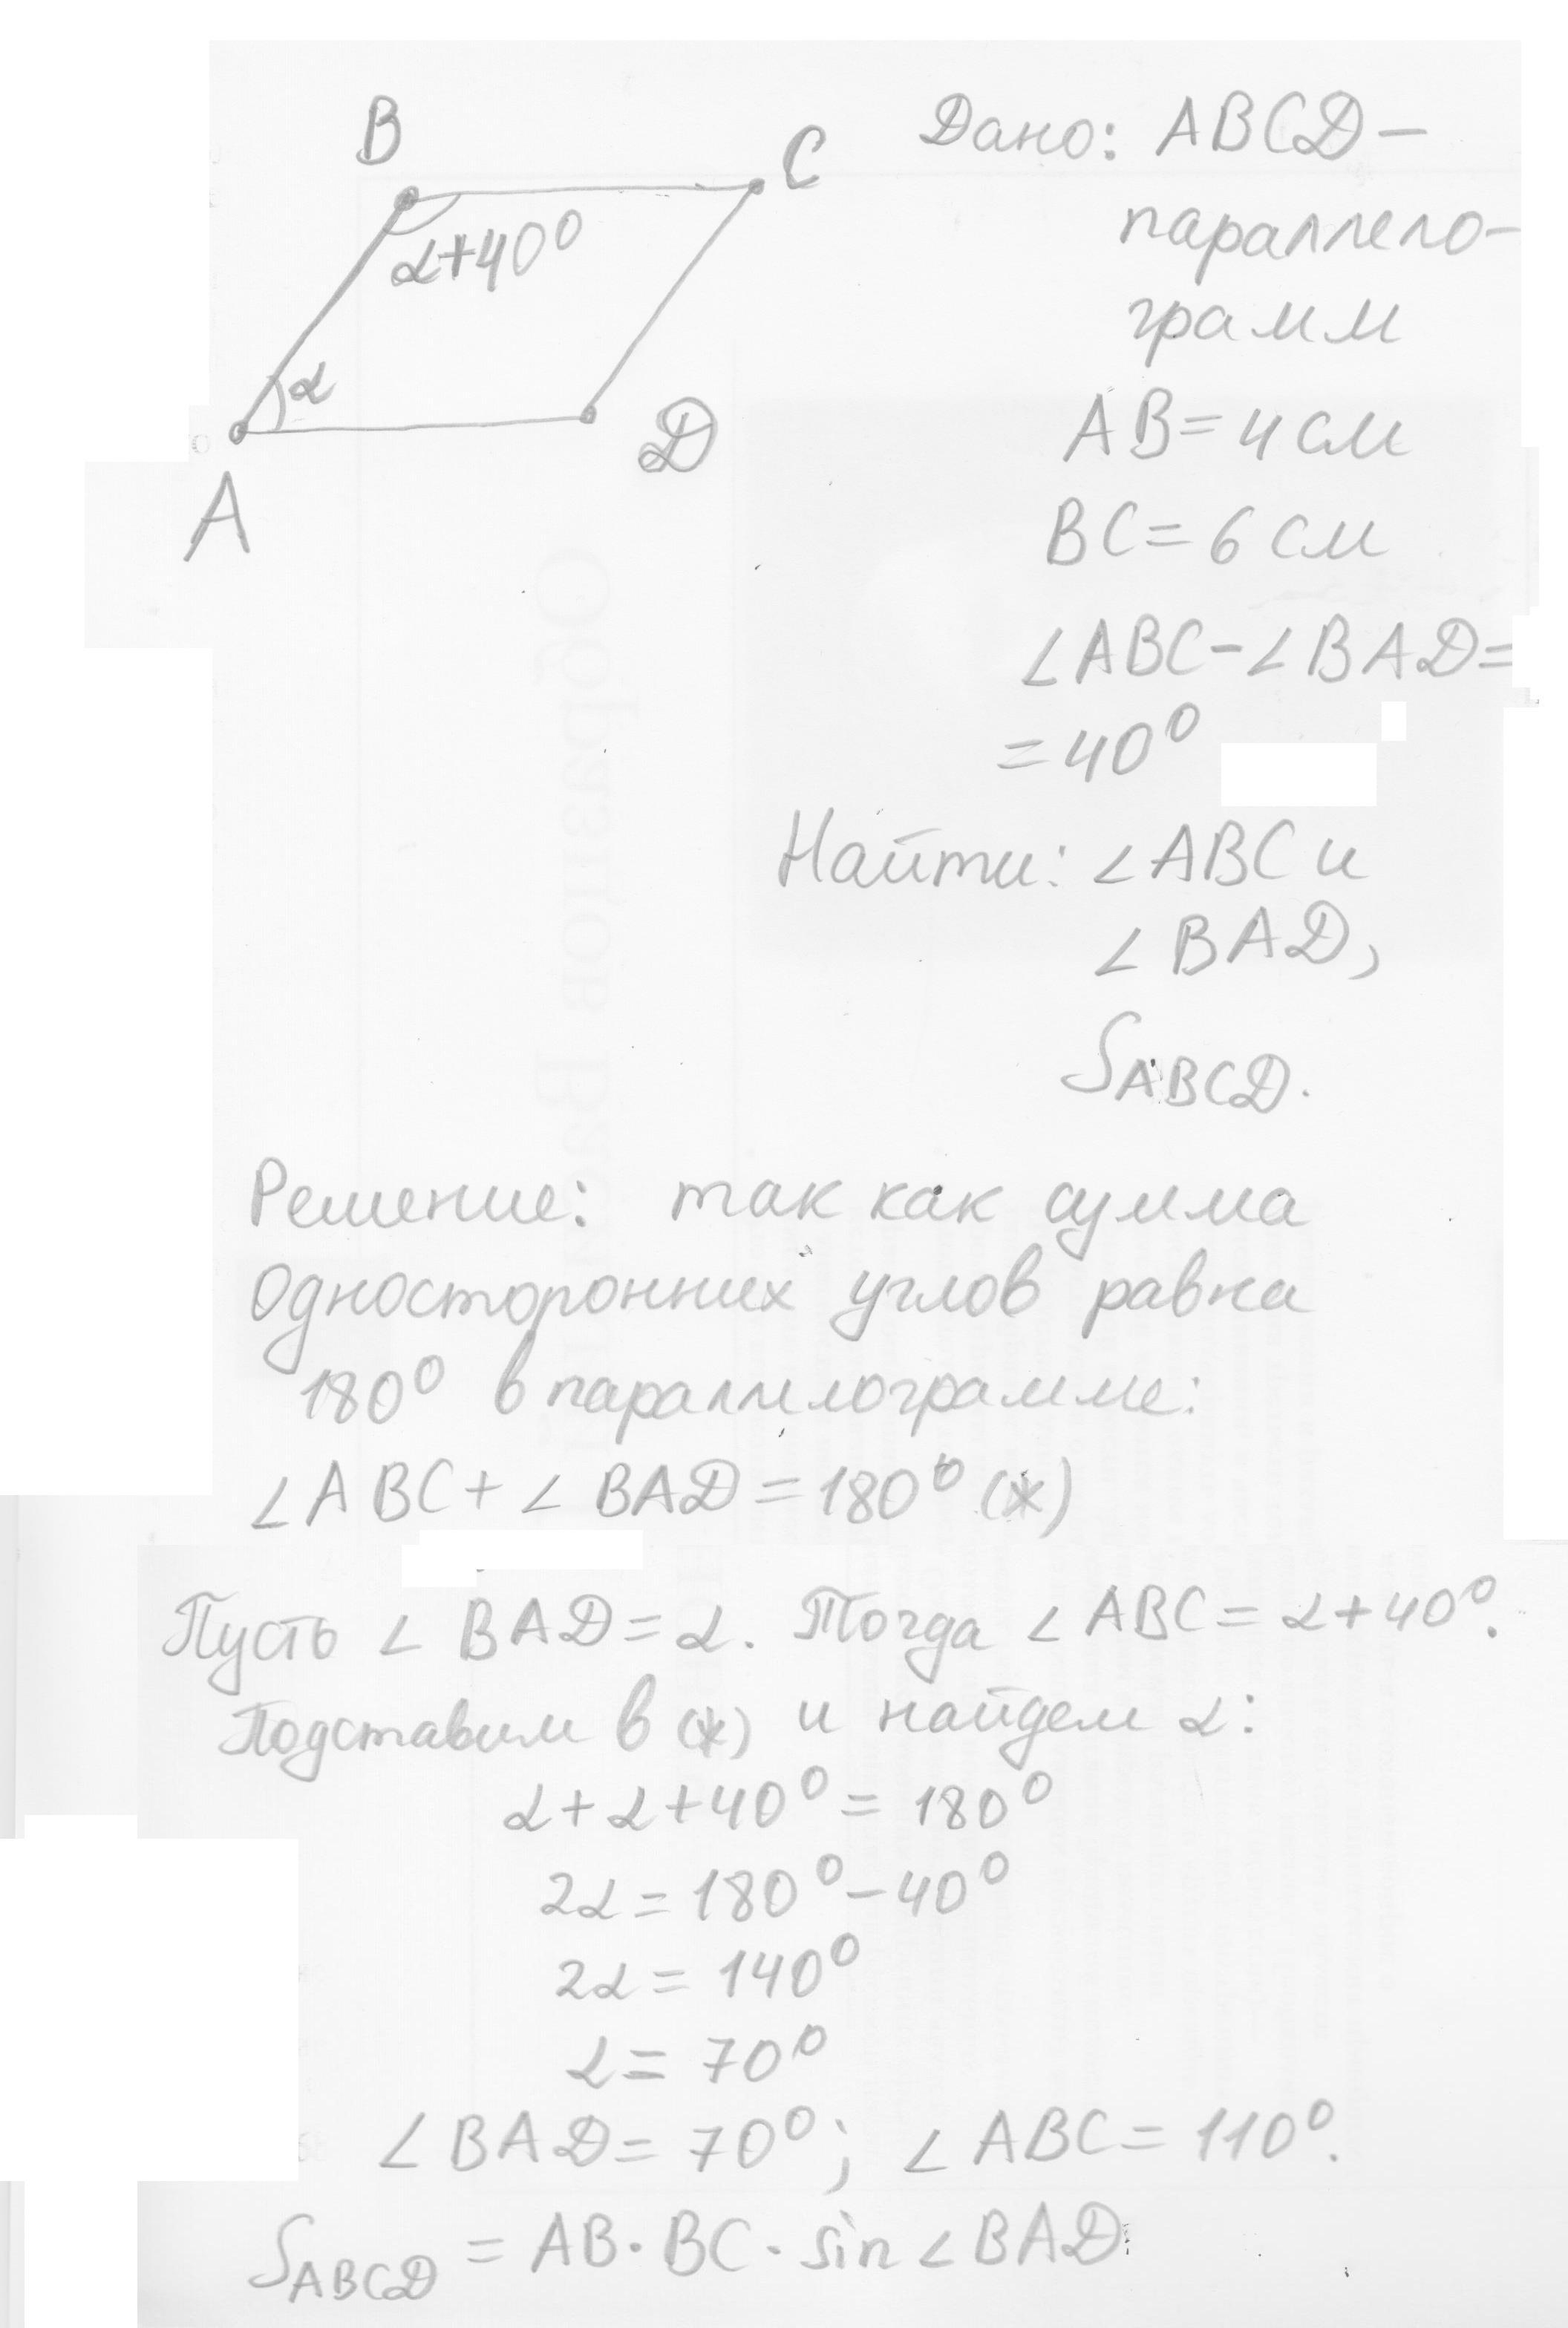 B
C
α+40°
α
A
D
Дано: ABCD –
параллело-
грамм
AB = 4 см
BC = 6 см
∠ABC - ∠BAD =
= 40°
Найти: ∠ABC и
∠BAD,
S_ABCD.
Решение: так как сумма
односторонних углов равна
180° в параллелограмме:
∠ABC + ∠BAD = 180° (*)
Пусть ∠BAD = α. Тогда ∠ABC = α + 40°.
Подставим в (*) и найдем α:
α + α + 40° = 180°
2α = 180° - 40°
2α = 140°
α = 70°
∠BAD = 70°; ∠ABC = 110°.
S_ABCD = AB · BC · sin ∠BAD